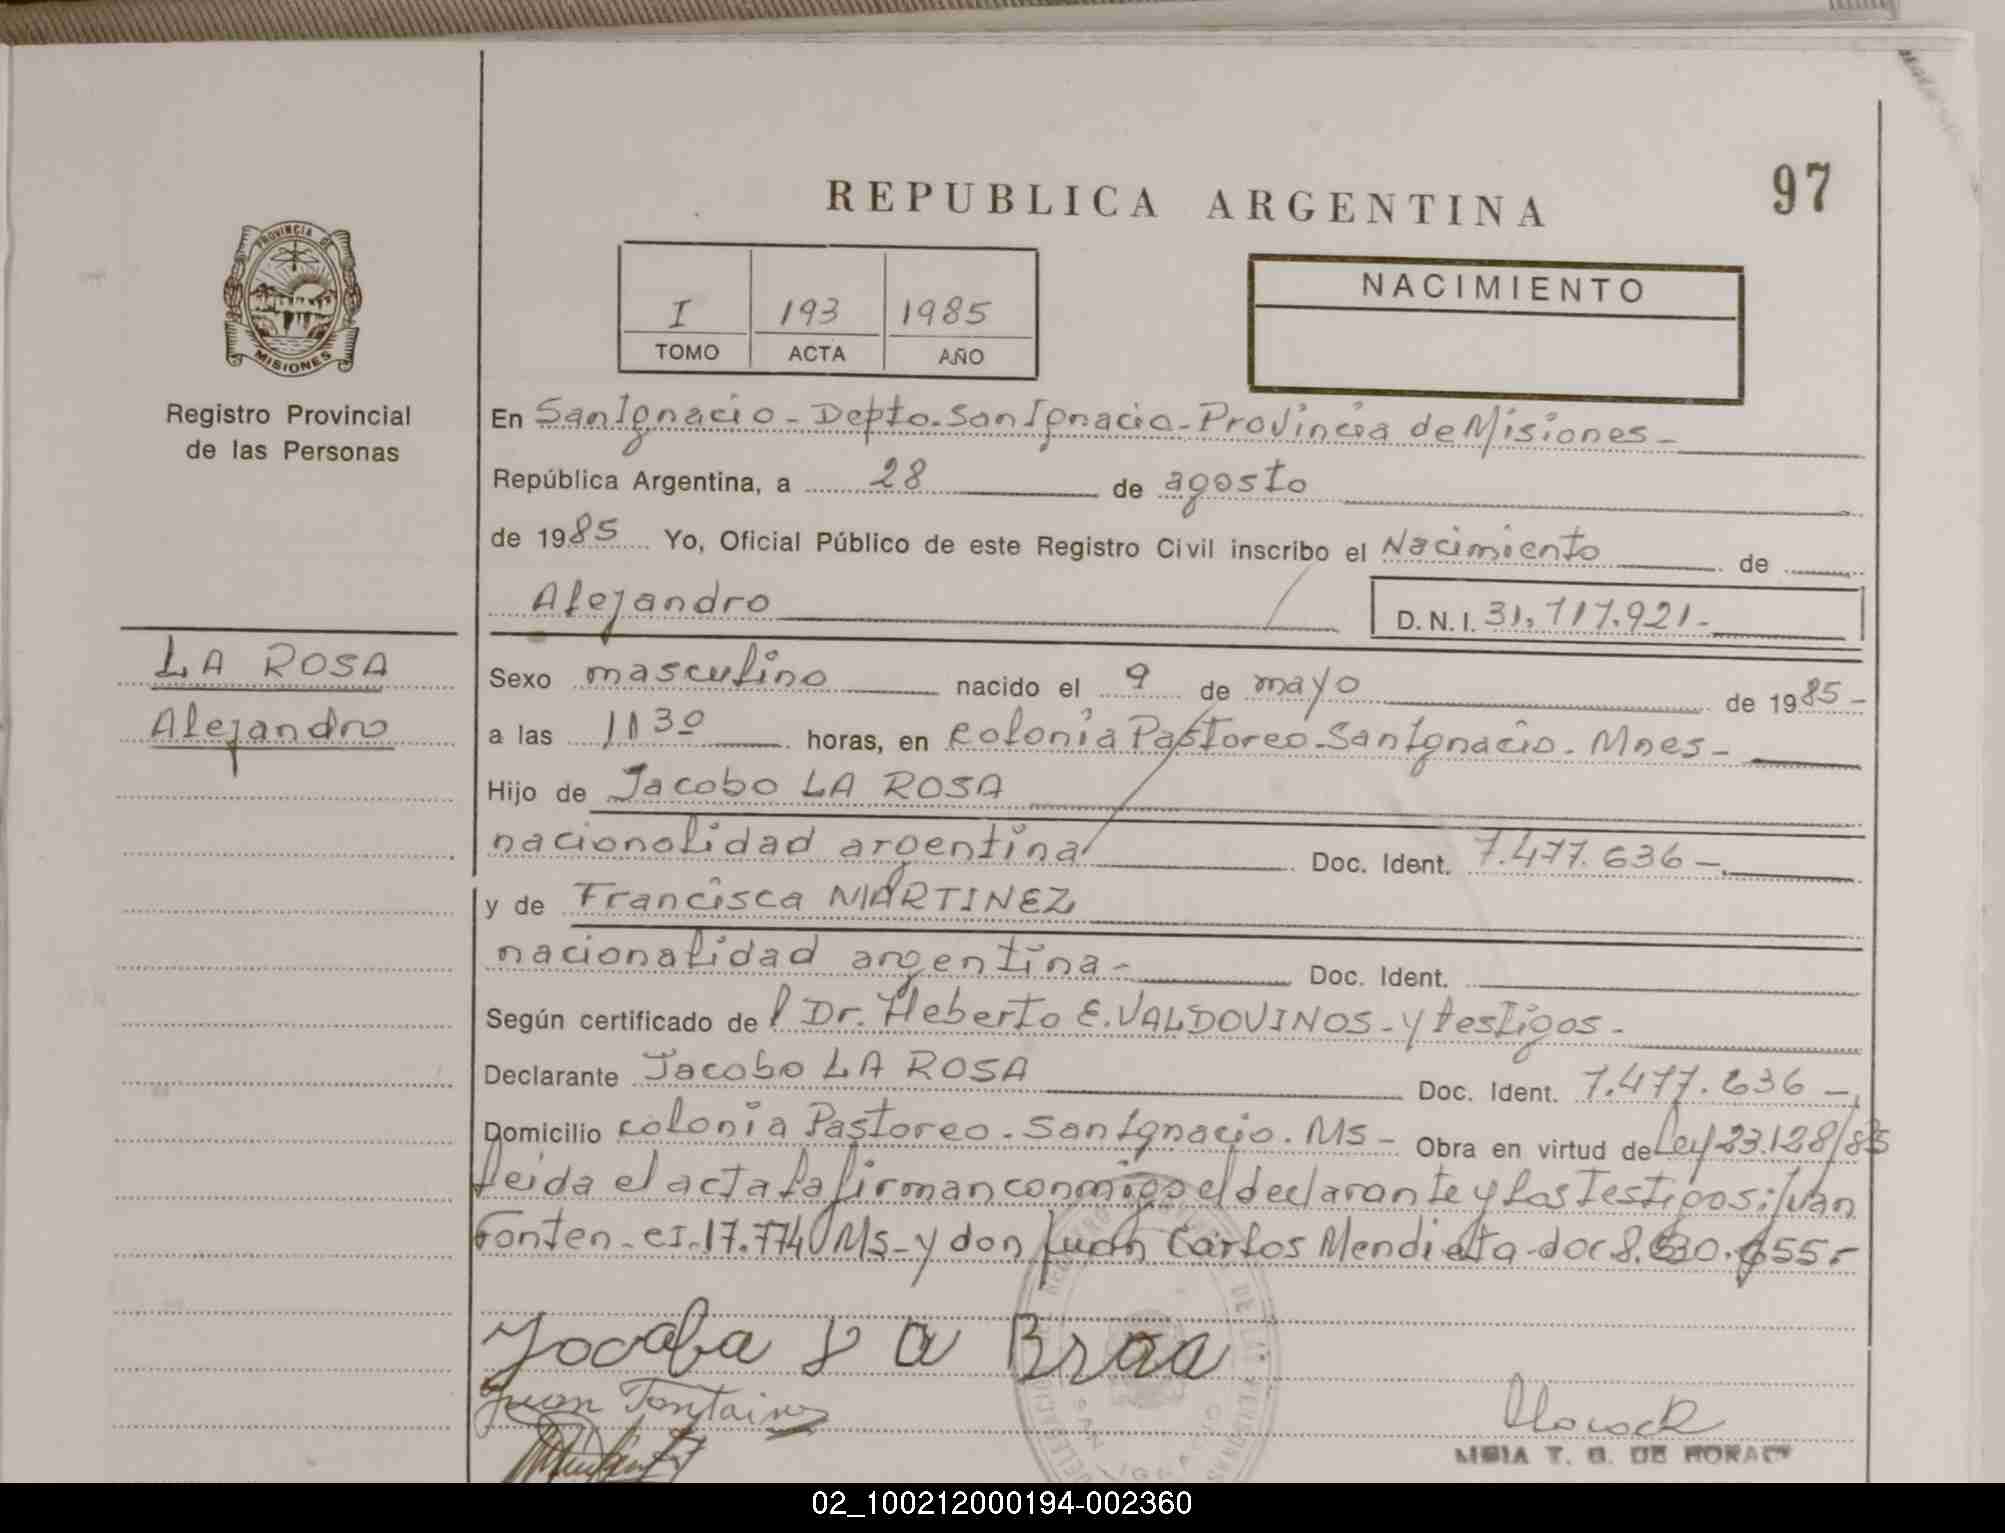 REPUBLICA ARGENTINA
97
PROVINCIA DE
MISIONES
Registro Provincial
de las Personas
I 193 1985
TOMO ACTA AÑO
NACIMIENTO
En San Ignacio - Depto. San Ignacio - Provincia de Misiones -
República Argentina, a 28 de agosto
de 1985 Yo, Oficial Público de este Registro Civil inscribo el Nacimiento de
Alejandro D.N.I. 31.717.921.-
LA ROSA
Alejandro
Sexo masculino nacido el 9 de mayo de 1985-
a las 1130 horas, en colonia Pastoreo - San Ignacio - Mnes -
Hijo de Jacobo LA ROSA
nacionalidad argentina Doc. Ident. 7.477.636 -
y de Francisca MARTINEZ
nacionalidad argentina - Doc. Ident.
Según certificado del Dr. Heberto E. VALDOVINOS - y testigos -
Declarante Jacobo LA ROSA Doc. Ident. 7.477.636 -
Domicilio colonia Pastoreo - San Ignacio. Ms - Obra en virtud de Ley 23.128/85
leida el acta la firman conmigo el declarante y los testigos: Juan
Fonten - CI. 17.774 Ms - y don Juan Carlos Mendieta - doc 8.530.655 -
Juan Fontaine
02_100212000194-002360